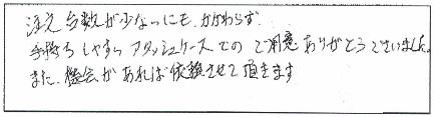 注文台数が少ないにも、かかわらず、
手持ちしやすい アタッシュケースでの ご用意ありがとうございました。
また、機会があれば依頼させて頂きます